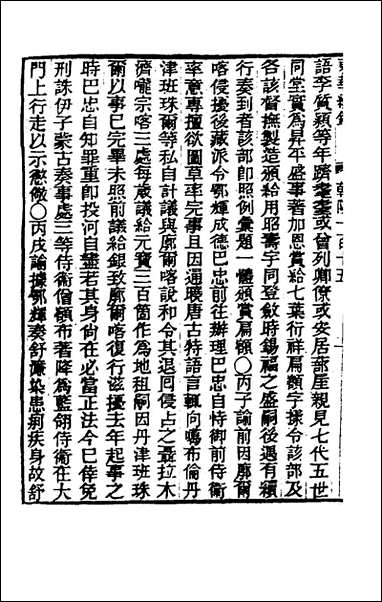 東華續錄 乾隆一百十五
語李質穎等年躋耄耋或曾列卿僚或安居蔀屋親見七代五世
同堂實為昇平盛事著加恩賞給七葉衍祥扁額字樣令該部及
各該督撫製造頒給用昭壽宇同登斂時錫福之盛嗣後遇有續
行奏到者該部卽照例彙題一體頒賞扁額○丙子諭前因廓爾
喀侵擾後藏派令鄂輝成德巴忠前往辦理巴忠自恃御前侍衞
率意專擅欲圖草率完事且因通曉唐古特語言輒向噶布倫丹
津班珠爾等私自計議與廓爾喀說和令其退囘侵占之聶拉木
濟嚨宗喀三處每歲議給元寶三百箇作為地租嗣因丹津班珠
爾以事已完畢未照前議給銀致廓爾喀復行滋擾去年起事之
時巴忠自知罪重卽投河自盡若其身尙在必當正法今巳倖免
刑誅伊子蒙古奏事處三等侍衞僧額布著降為藍翎侍衞在大
門上行走以示懲儆○丙戌諭據鄂輝奏舒濂染患痢疾身故舒